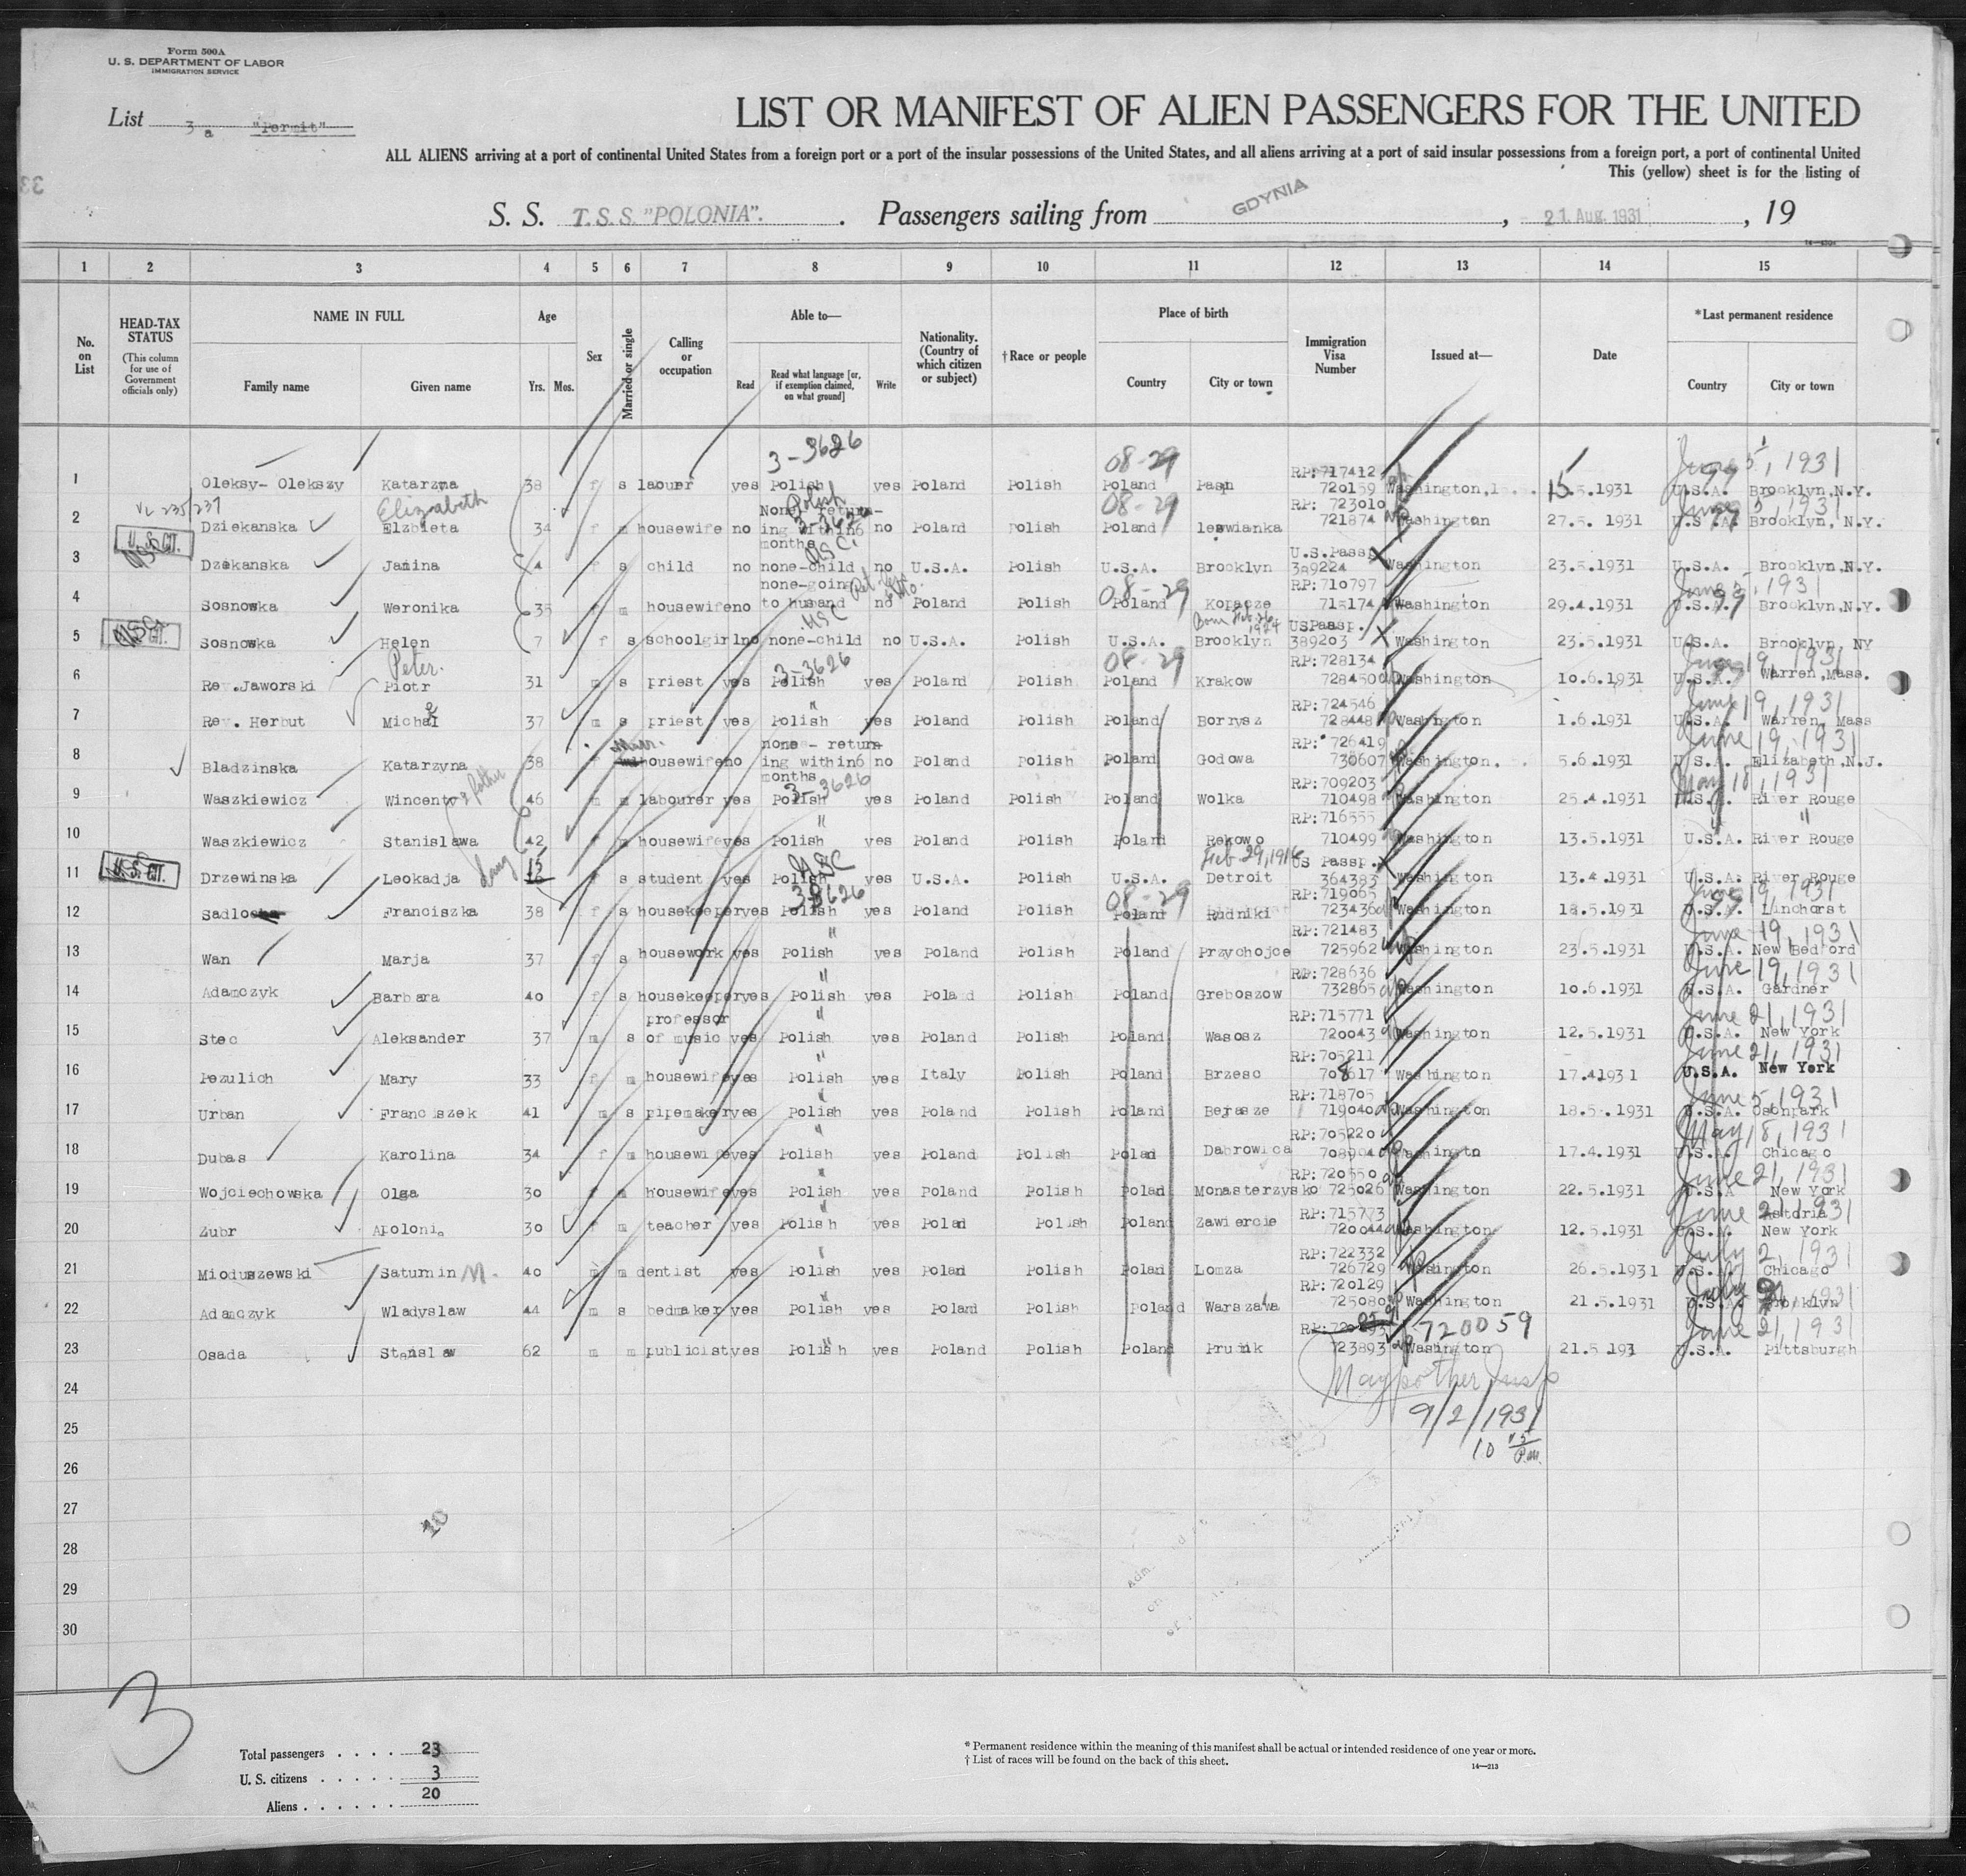 Form 500A
U. S. DEPARTMENT OF LABOR
IMMIGRATION SERVICE
List 3 a "Permit"
LIST OR MANIFEST OF ALIEN PASSENGERS FOR THE UNITED
ALL ALIENS arriving at a port of continental United States from a foreign port or a port of the insular possessions of the United States, and all aliens arriving at a port of said insular possessions from a foreign port, a port of continental United
This (yellow) sheet is for the listing of
S. S. T.S.S. "POLONIA". Passengers sailing from GDYNIA, 21. Aug. 1931, 19
1 2 3 4 5 6 7 8 9 10 11 12 13 14 15
No. on List
HEAD-TAX STATUS (This column for use of Government officials only)
NAME IN FULL
Family name Given name
Age
Yrs. Mos.
Sex
Married or single
Calling or occupation
Able to—
Read Read what language [or, if exemption claimed, on what ground] Write
Nationality. (Country of which citizen or subject)
†Race or people
Place of birth
Country City or town
Immigration Visa Number
Issued at—
Date
*Last permanent residence
Country City or town
3-3626 08-29 June 5, 1931
RP:717412
1 Oleksy- Olekszy Katarzyna 38 f s yes Polish yes Poland Polish Poland 720159 Washington 15.5.1931 U.S.A. Brooklyn,N.Y.
Elizabeth Polish 08-29 RP: 723010 June 5, 1931
2 Dziekanska Elzbieta 34 f m housewife no None- returning within6 months no Poland Polish Poland 721874 Washington 27.5. 1931 U.S.A. Brooklyn, N.Y.
U.S. CIT. USC U.S.Pass.
3 Janina 4 f s child no none-child no U.S.A. Polish U.S.A. Brooklyn 389224 Washington 23.5.1931 U.S.A. Brooklyn,N.Y.
RP:710797 June 5, 1931
4 Sosnowska Weronika 35 f m housewife no none-going to husband no Poland Polish Poland 08-29 715174 Washington 29.4.1931 U.S.A. Brooklyn,N.Y.
USC USPassp.
5 Sosnowska Helen 7 f s schoolgirl no none-child no U.S.A. Polish U.S.A. Brooklyn 389203 Washington 23.5.1931 U.S.A. Brooklyn, NY
Peter 3-3626 08-29 RP:728134 June 19, 1931
6 Rev.Jaworski Piotr 31 m s priest yes Polish yes Poland Polish Poland Krakow 728450 Washington 10.6.1931 U.S.A. Warren,Mass.
RP:724546 June 19, 1931
7 Rev. Herbut Michal 37 m s priest yes Polish yes Poland Polish Poland Borrysz 728448 Washington 1.6.1931 U.S.A. Warren, Mass
RP: 726419 June 19, 1931
8 Bladzinska Katarzyna 38 housewife no none - returning within6 months no Poland Polish Poland Godowa 730607 Washington 5.6.1931 U.S.A. Elizabeth,N.J.
3-3626 RP:709203 May 18, 1931
9 Waszkiewicz Wincenty 46 m m labourer yes Polish yes Poland Polish Poland Wolka 710498 Washington 25.4.1931 U.S.A. River Rouge
RP:716555 "
10 Waszkiewicz Stanislawa 42 f m housewife yes Polish yes Poland Polish Poland Rekowo 710499 Washington 13.5.1931 U.S.A. River Rouge
U.S. CIT. USC Feb 29, 1916 US Passp.
11 Drzewinska Leokadja 15 f s student yes Polish yes U.S.A. Polish U.S.A. Detroit 364383 Washington 13.4.1931 U.S.A. River Rouge
3-3626 08-29 RP:719065 June 19, 1931
12 Franciszka 38 f s housekeeper yes Polish yes Poland Polish Poland Rudniki 723436 Washington 18.5.1931 U.S.A. Linchorst
RP:721483 June 19, 1931
13 Wan Marja 37 f s housework yes Polish yes Poland Polish Poland Przychojce 725962 Washington 23.5.1931 U.S.A. New Bedford
RP:728636 June 19, 1931
14 Adamczyk Barbara 40 f s housekeeper yes Polish yes Poland Polish Poland Greboszow 732865 Washington 10.6.1931 U.S.A. Gardner
RP:715771 June 21, 1931
15 Stec Aleksander 37 m s professor of music yes Polish yes Poland Polish Poland Wasosz 720043 Washington 12.5.1931 U.S.A. New York
RP:705211 June 21, 1931
16 Pezulich Mary 33 f m housewife yes Polish yes Italy Polish Poland Brzesc 708617 Washington 17.4.1931 U.S.A. New York
RP:718705 June 5, 1931
17 Urban Franciszek 41 m s pipemaker yes Polish yes Poland Polish Poland 719040 Washington 18.5.1931 U.S.A. Osonpark
RP:705220 May 18, 1931
18 Dubas Karolina 34 f m housewife yes Polish yes Poland Polish Poland Dabrowica 708904 Washington 17.4.1931 U.S.A. Chicago
RP:720550 June 21, 1931
19 Wojciechowska Olga 30 f m housewife yes Polish yes Poland Polish Poland Monasterzysko 725026 Washington 22.5.1931 U.S.A New York
RP:715773 June 21, 1931 Astoria
20 Zubr Apolonia 30 f m teacher yes Polish yes Poland Polish Poland Zawiercie 720044 Washington 12.5.1931 U.S.A. New York
RP:722332 July 2, 1931
21 Mioduszewski Saturnin M. 40 m m dentist yes Polish yes Poland Polish Poland Lomza 726729 Washington 26.5.1931 U.S.A. Chicago
RP:720129
22 Adamczyk Wladyslaw 44 m s bedmaker yes Polish yes Poland Polish Poland Warszawa 725080 Washington 21.5.1931 U.S.A. Brooklyn
720059 June 21, 1931
23 Osada Stanislaw 62 m m publicist yes Polish yes Poland Polish Poland Prudnik 723893 Washington 21.5.193 U.S.A. Pittsburgh
24
9/2/1931
25
10 15 P.m.
26
27
28
29
30
3
Total passengers . . . . 23
U. S. citizens . . . . . 3
Aliens . . . . . . 20
* Permanent residence within the meaning of this manifest shall be actual or intended residence of one year or more.
† List of races will be found on the back of this sheet.
14—213